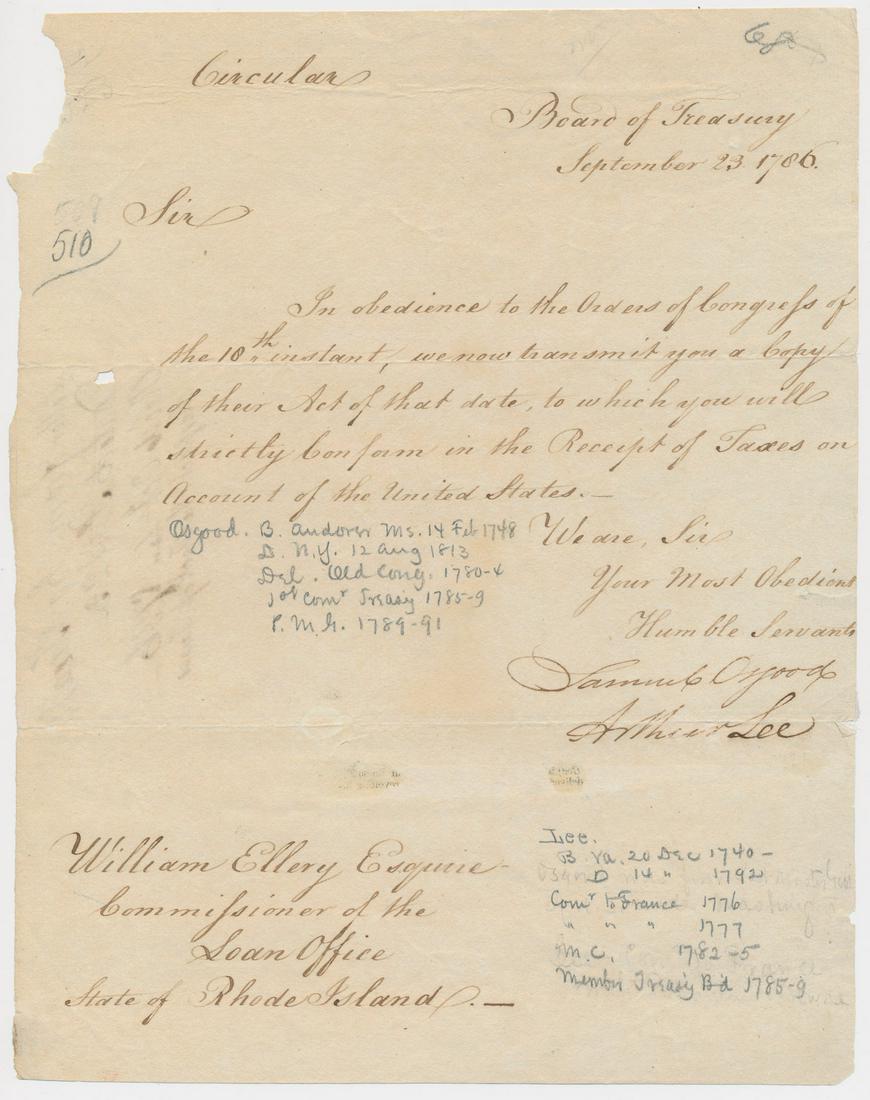 Circular
Board of Treasury
September 23. 1786.
Sir
510
In obedience to the Orders of Congress of
the 18th instant, we now transmit you a Copy
of their Act of that date, to which you will
strictly Conform in the Receipt of Taxes on
Account of the United States.—
We are, Sir
Your Most Obedient
Humble Servants
Samuel Osgood
Arthur Lee
Osgood. B. Andover Ms. 14 Feb 1748
D. N.Y. 12 Aug 1813
Del. Old Cong. 1780-4
1st Comr Treasy 1785-9
P. M. G. 1789-91
William Ellery Esquire
Commissioner of the
Loan Office
State of Rhode Island.—
Lee.
B Va. 20 Dec 1740-
D 14 " 1792
Comr to France 1776
" " " 1777
M.C. 1782-5
Member Treasy Bd 1785-9